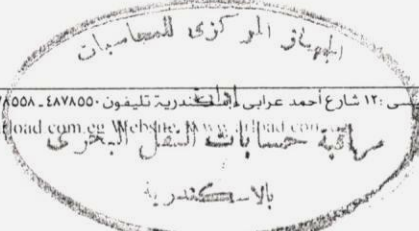 الجهاز المركزى للمحاسبات
سى : ١٢ شارع أحمد عرابى الاسكندرية تليفون ٤٨٧٨٥٥٠ ـ
load.com.eg Website: www.
مراقبة حسابات النقل البحرى
بالاسكندرية